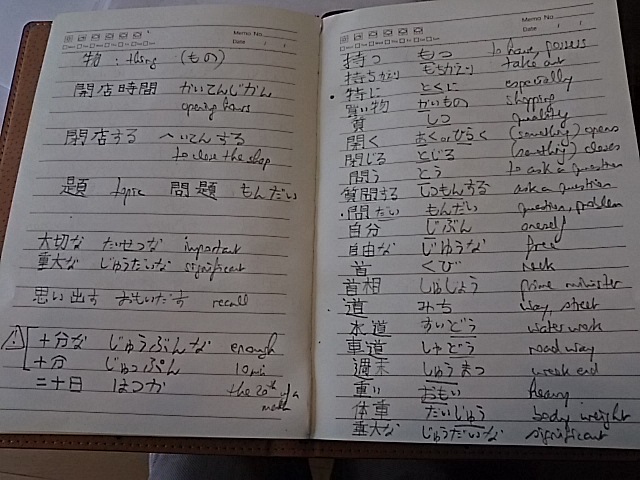 Memo No.
Date / /
物 : thing (もの)
開店時間 かいてんじかん
opening hours
閉店する へいてんする
to close the shop
題 topic 問題 もんだい
大切な たいせつな important
重大な じゅうだいな significant
思い出す おもいだす recall
十分な じゅうぶんな enough
十分 じゅっぷん 10 min
二十日 はつか the 20th of a month
Memo No.
Date / /
持つ もつ to have, possess
持ち帰り もちかえり take out
特に とくに especially
買い物 かいもの shopping
質 しつ quality
開く あく or ひらく (something) opens
閉じる とじる (something) closes
問う とう to ask a question
質問する しつもんする ask a question
問だい もんだい question, problem
自分 じぶん oneself
自由な じゆうな free
首 くび neck
首相 しゅしょう prime minister
道 みち way, street
水道 すいどう water work
車道 しゃどう road way
週末 しゅうまつ week end
重い おもい heavy
体重 たいじゅう body weight
重大な じゅうだいな significant